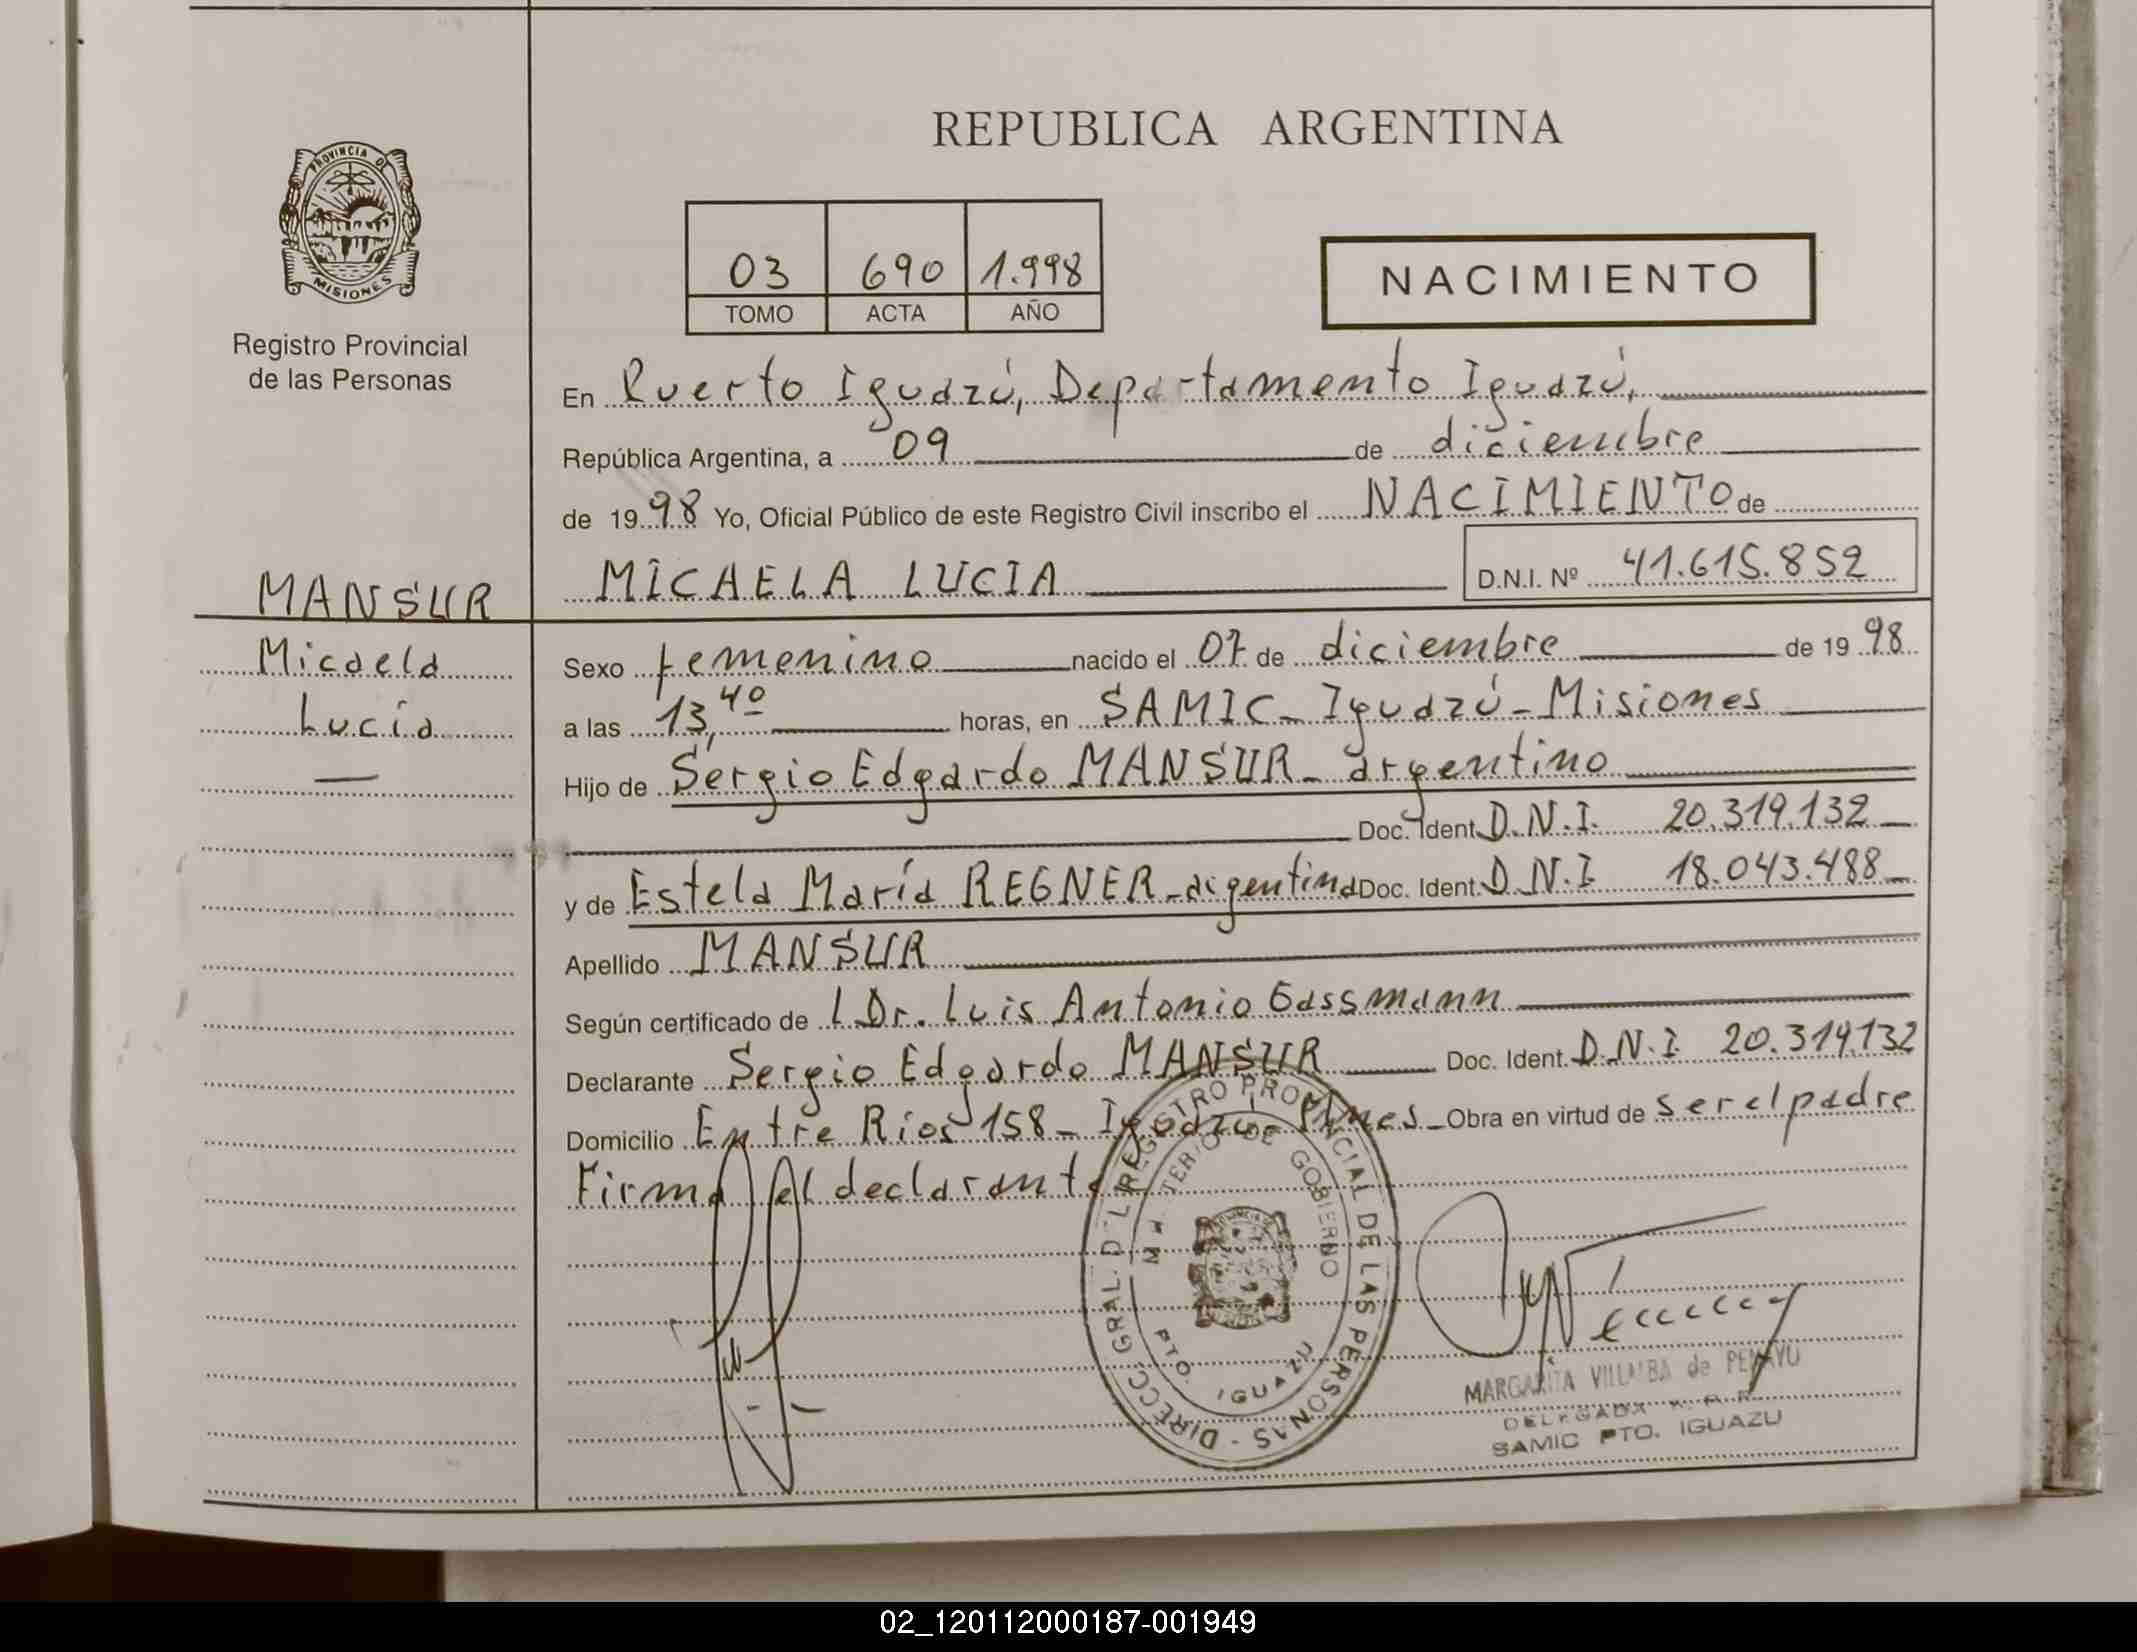 REPUBLICA ARGENTINA
PROVINCIA DE
MISIONES
Registro Provincial
de las Personas
03 690 1.998
TOMO ACTA AÑO
NACIMIENTO
En Puerto Iguazú, Departamento Iguazú,
República Argentina, a 09 de diciembre
de 1998 Yo, Oficial Público de este Registro Civil inscribo el NACIMIENTO de
MICAELA LUCIA D.N.I. Nº 41.615.852
MANSUR
Micaela
Lucía
Sexo femenino nacido el 07 de diciembre de 1998
a las 13,40 horas, en SAMIC - Iguazú - Misiones
Hijo de Sergio Edgardo MANSUR - argentino
Doc. Ident. D.N.I. 20.319.132
y de Estela María REGNER - argentina Doc. Ident. D.N.I 18.043.488
Apellido MANSUR
Según certificado de l Dr. Luis Antonio Gassmann
Declarante Sergio Edgardo MANSUR Doc. Ident. D.N.I. 20.319.132
Domicilio Entre Ríos 158 - Iguazú - Mnes - Obra en virtud de ser el padre
Firma el declarante
DIRECC. GRAL. DEL REGISTRO PROVINCIAL DE LAS PERSONAS -
MINISTERIO DE GOBIERNO
PTO. IGUAZU
MARGARITA VILLALBA de
DELEGADA
SAMIC PTO. IGUAZU
02_120112000187-001949